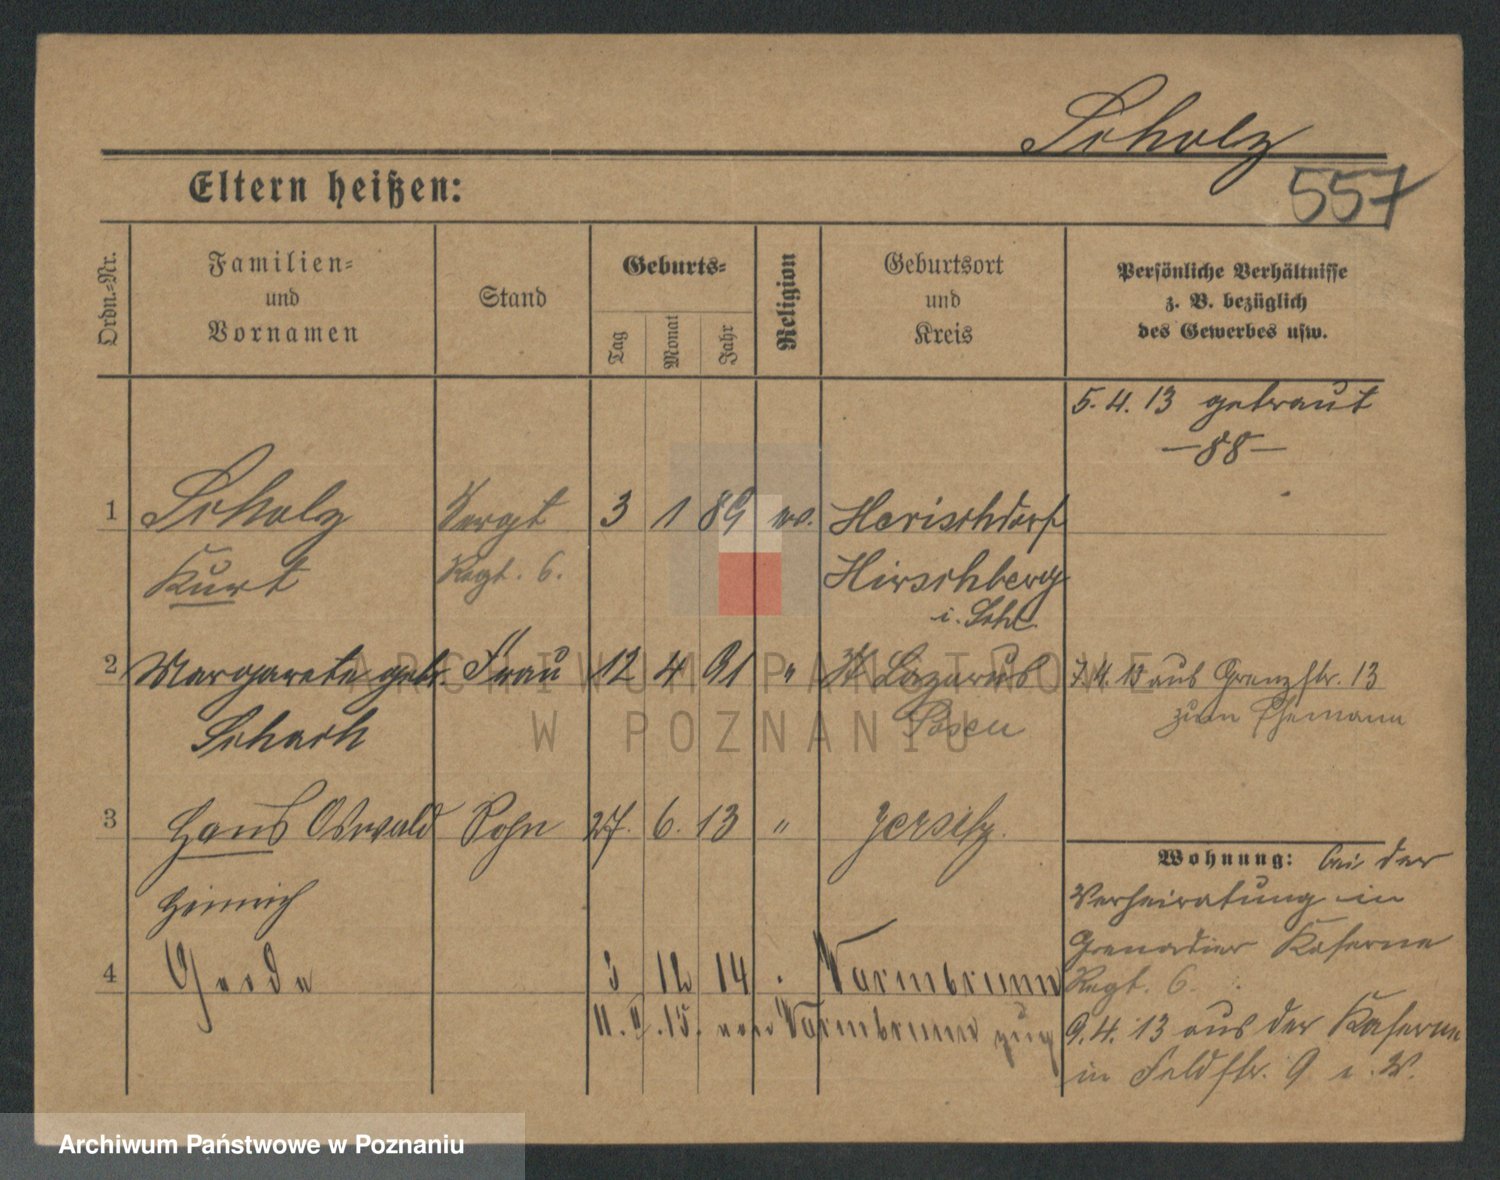 Scholz
557
Eltern heißen:
Ordn.-Nr.
Familien-
und
Vornamen
Stand
Geburts-
Tag
Monat
Jahr
Religion
Geburtsort
und
Kreis
Persönliche Verhältnisse
z. B. bezüglich
des Gewerbes usw.
5. 4. 13 getraut
— 88 —
1 Scholz Sergt 3 1 89 ev. Herischdorf
Kurt Regt. 6. Hirschberg
i. Schl.
2 Margarete geb. Frau 12 4 91 " St Lazarus 7. 4. 13 aus Grenzstr. 13
Schach Posen zum Ehemann
3 Hans Oswald Sohn 27. 6. 13 " Jersitz.
Heinrich
Wohnung: bei der
Verheiratung in
Grenadier Kaserne
Regt. 6.
4 Gerda 3 12 14 Warmbrunn
11. 15. von Warmbrunn zug
9. 4. 13 aus der Kaserne
in Feldstr. 9 i. W.
ARCHIWUM PAŃSTWOWE
W POZNANIU
Archiwum Państwowe w Poznaniu